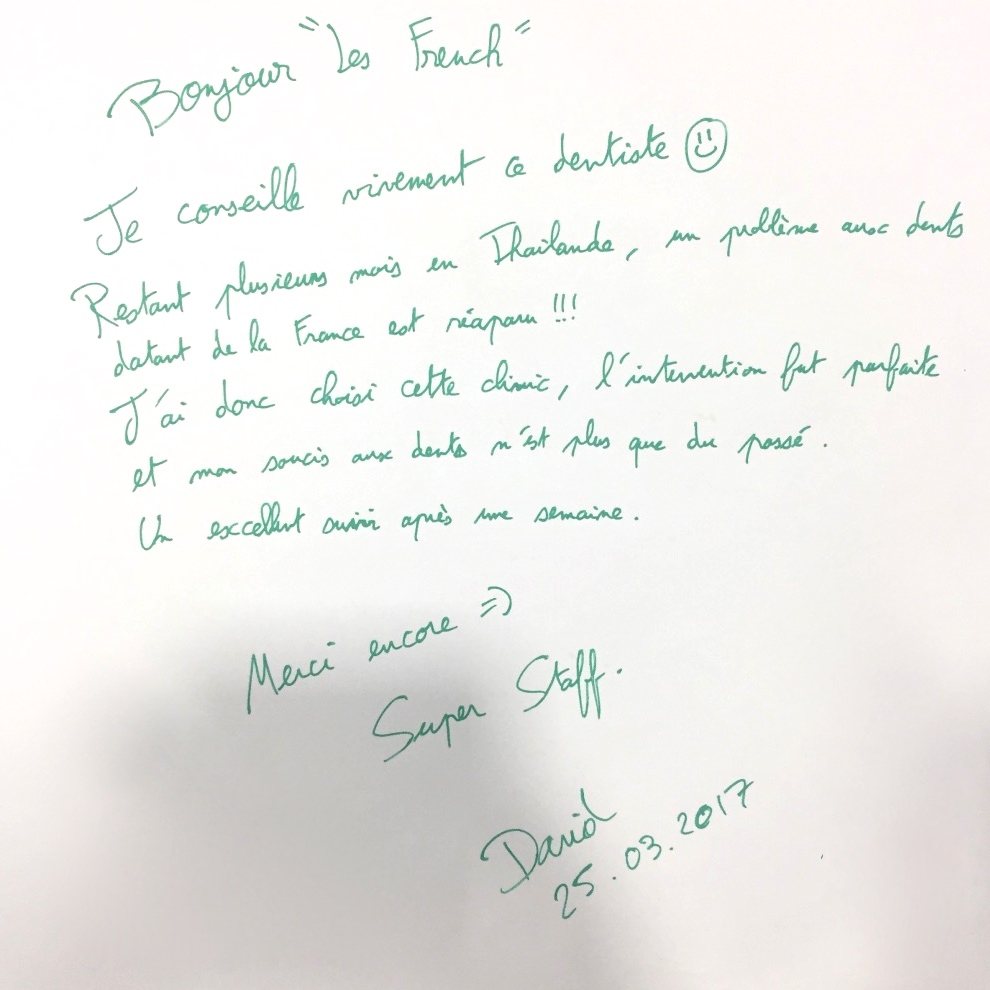 Bonjour "Les French"
Je conseille vivement ce dentiste
Restant plusieurs mois en Thailande, un problème aux dents
datant de la France est réaparu !!!
J'ai donc choisi cette clinic, l'intervention fut parfaite
et mon soucis aux dents n'est plus que du passé.
Un excellent suivi après une semaine.
Merci encore =)
Super Staff.
David
25.03.2017